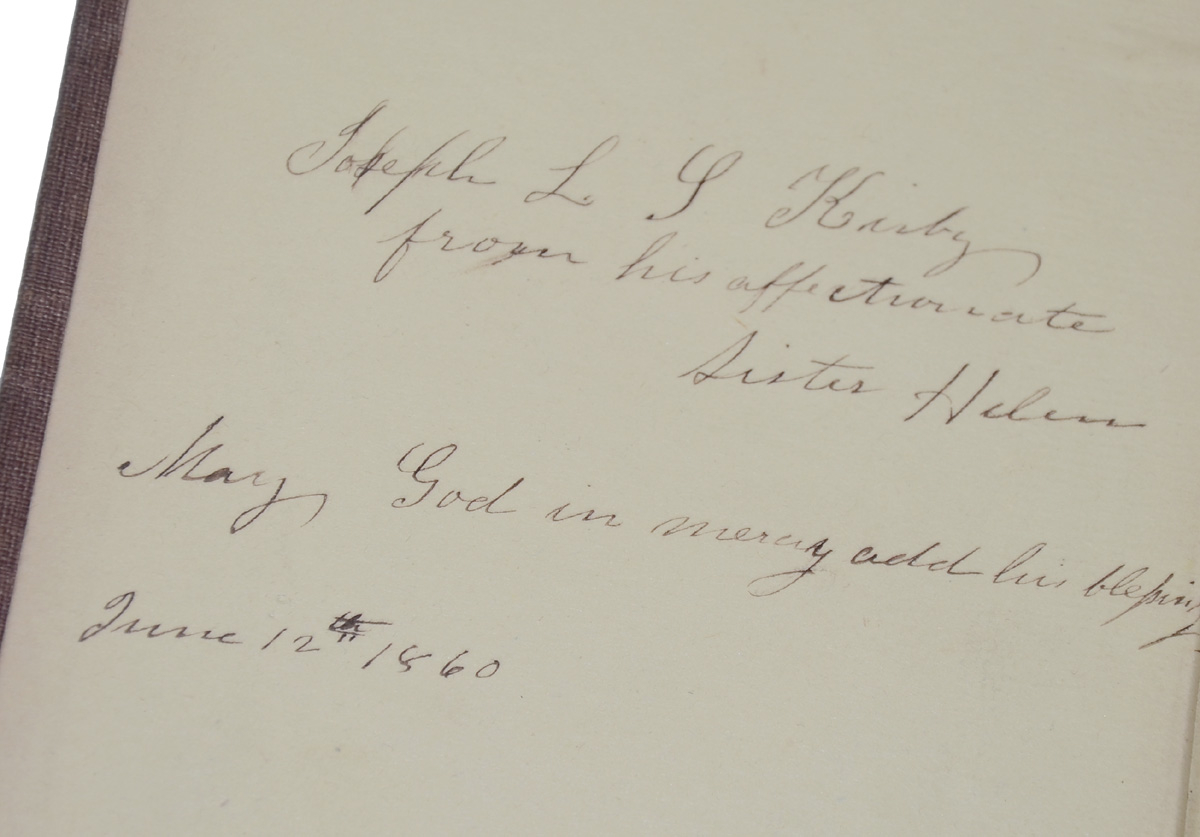 Joseph L. S Kirby
from his affectionate
Sister Helen
May God in mercy add his blessing
June 12th 1860